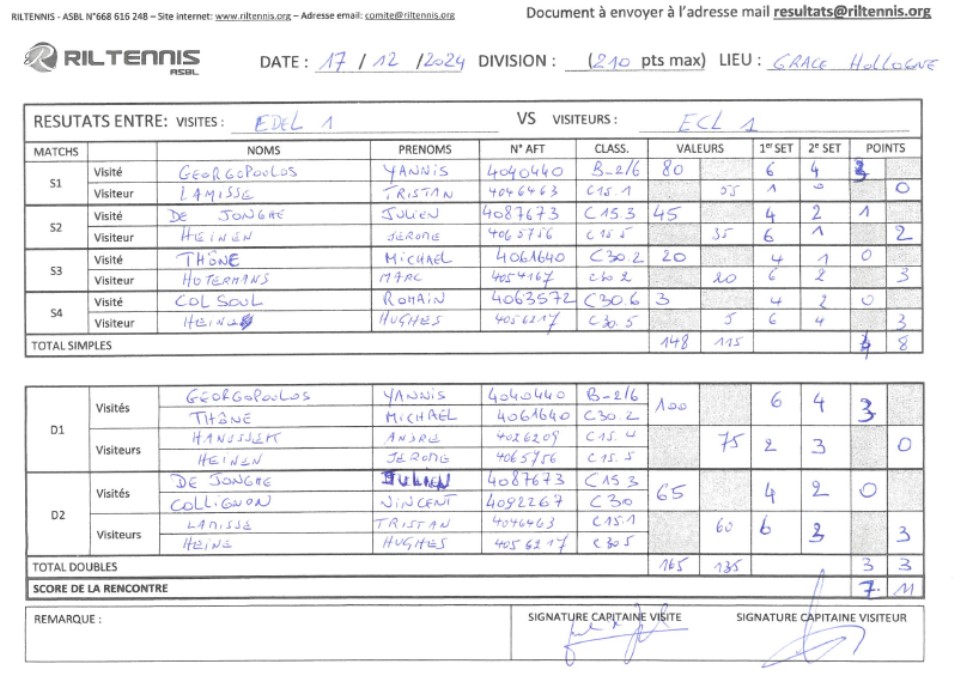 RILTENNIS - ASBL N°668 616 248 – Site internet: www.riltennis.org – Adresse email: comite@riltennis.org Document à envoyer à l'adresse mail resultats@riltennis.org
RILTENNIS ASBL DATE : 17 / 12 / 2024 DIVISION : (210 pts max) LIEU : GRACE HOLLOGNE
RESUTATS ENTRE: VISITES : EDEL 1 VS VISITEURS : ECL 1
MATCHS NOMS PRENOMS N° AFT CLASS. VALEURS 1er SET 2e SET POINTS
S1 Visité GEORGOPOULOS YANNIS 4040440 B-2/6 80 6 4 3
Visiteur LAMISSE TRISTAN 4046463 C15.1 55 1 0 0
S2 Visité DE JONGHE JULIEN 4087673 C15 3 45 4 2 1
Visiteur HEINEN JEROME 4065756 C15 5 35 6 1 2
S3 Visité THÔNE MICHAEL 4061640 C30.2 20 4 1 0
Visiteur HUTERMANS MARC 4054167 C30 2 20 6 2 3
S4 Visité COLSOUL ROMAIN 4063572 C30.6 3 4 2 0
Visiteur HEINE HUGHES 4056217 C30.5 5 6 4 3
TOTAL SIMPLES 148 115 4 8
D1 Visités GEORGOPOULOS YANNIS 4040440 B-2/6 100 6 4 3
THÔNE MICHAEL 4061640 C30.2
Visiteurs ANDRE 4026209 C15.4 75 2 3 0
HEINEN JEROME 4065756 C15.5
D2 Visités DE JONGHE JULIEN 4087673 C15 3 65 4 2 0
COLLIGNON VINCENT 4092267 C30
Visiteurs LAMISSE TRISTAN 4046463 C15.1 60 6 3 3
HEINE HUGHES 4056217 C30 5
TOTAL DOUBLES 165 135 3 3
SCORE DE LA RENCONTRE 7 11
REMARQUE : SIGNATURE CAPITAINE VISITE SIGNATURE CAPITAINE VISITEUR